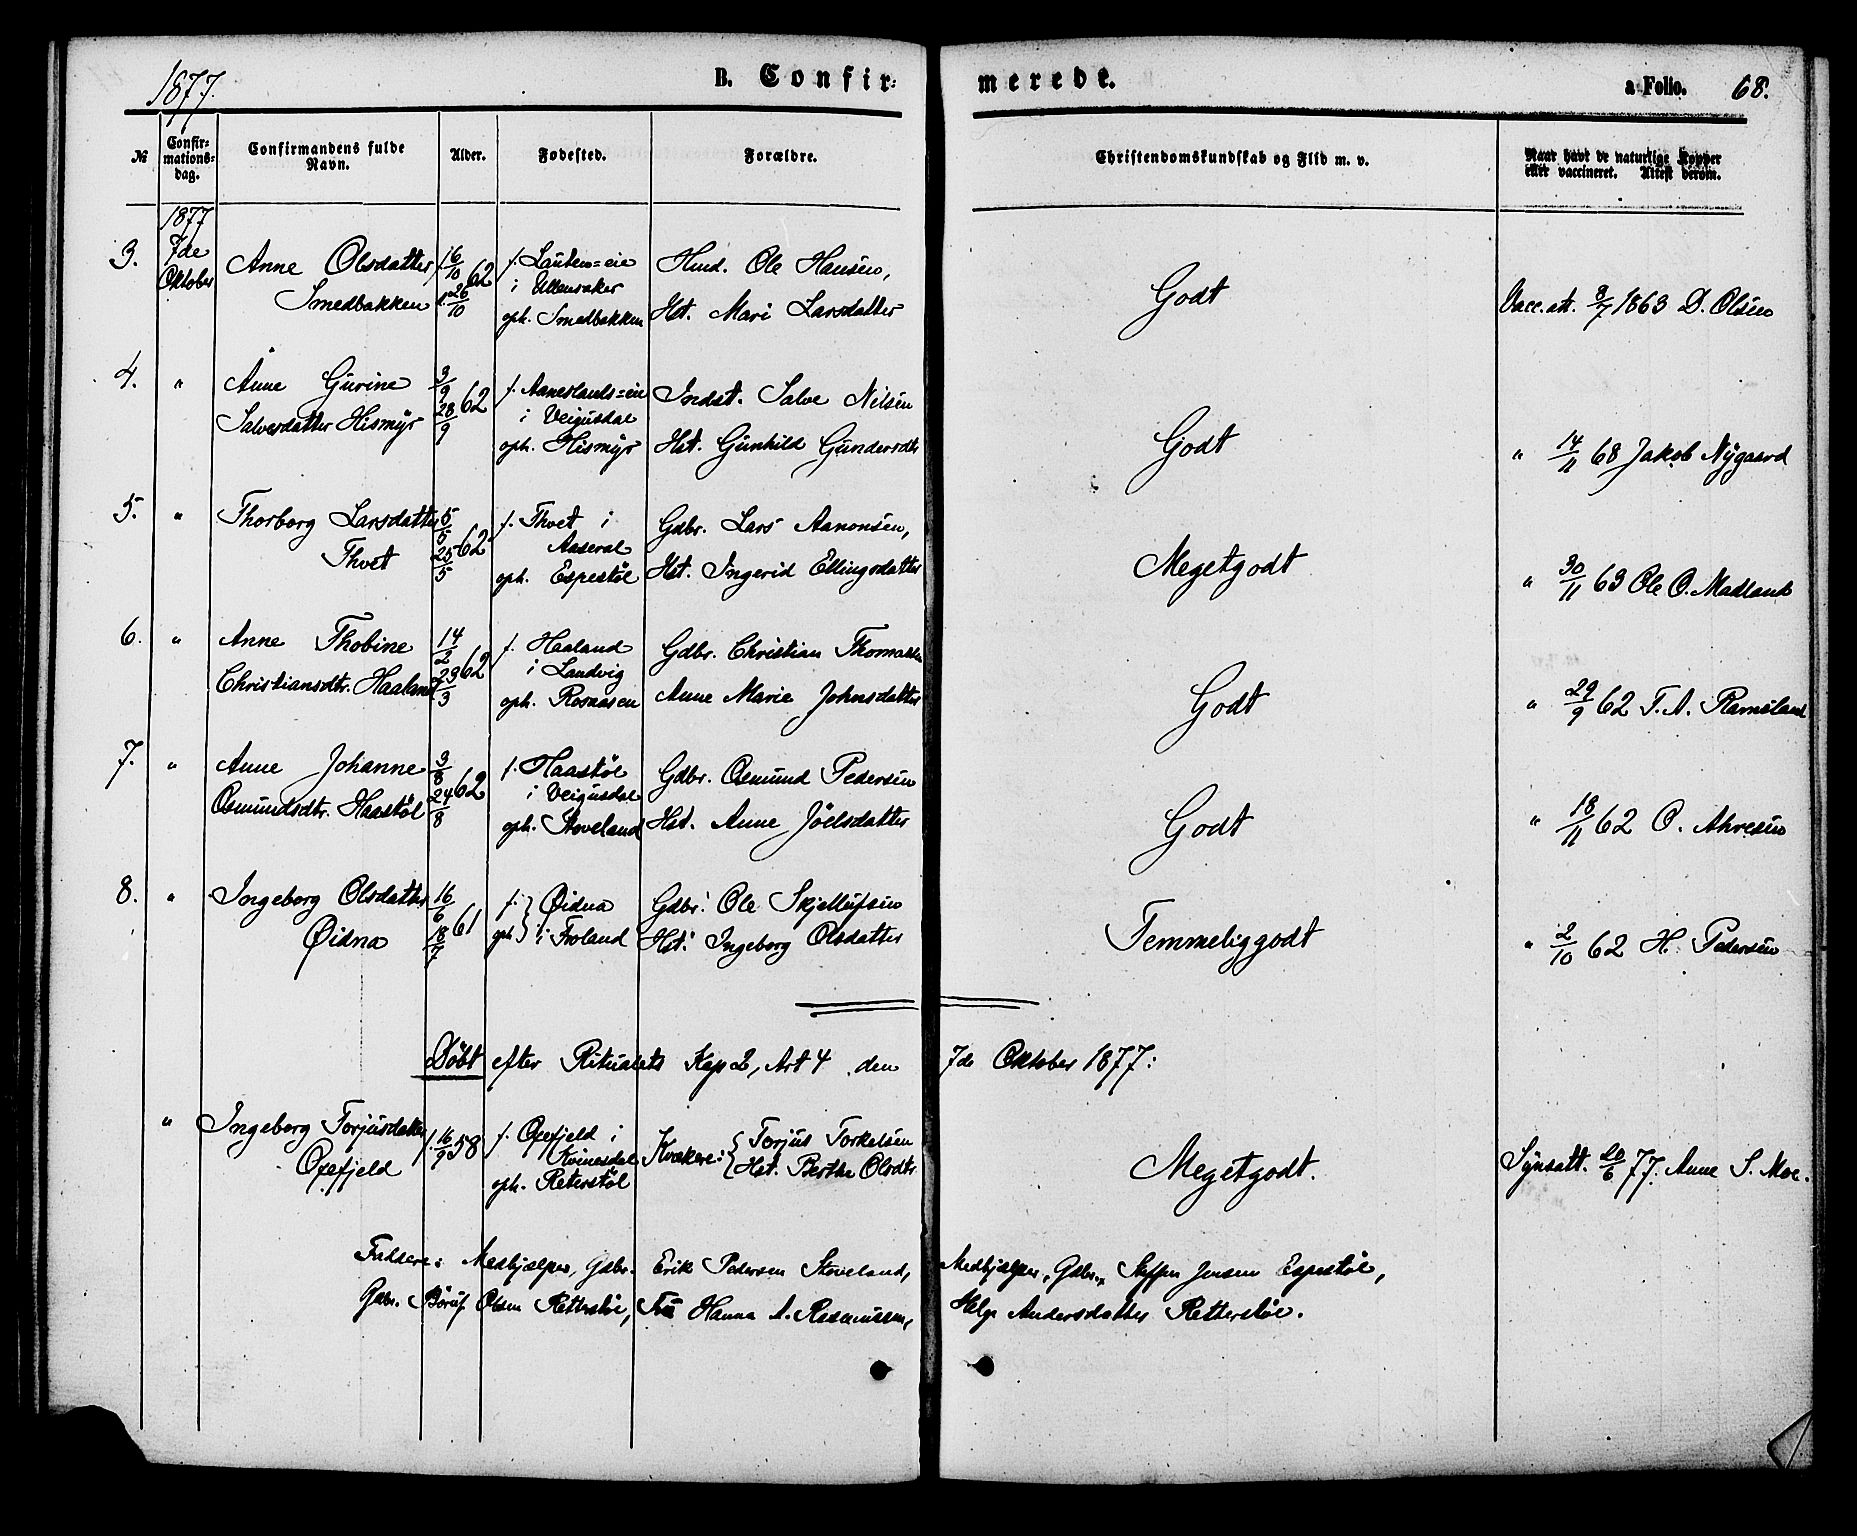 1877.
B. Confir-
merede.
a Folio. 68.
№
Confir-
mations-
dag.
Confirmandens fulde
Navn.
Alder.
Fødested.
Forældre.
Christendomskundskab og Flid m. v.
Naar havt de naturlige Kopper
eller vaccineret. Attest derom.
1877
3. 7de Oktober
Anne Olsdatter
Smedbakken
16/10 62
26/10
f. Lauten=eie
i Ullensaker
oph. Smedbakken
Husd. Ole Hansen,
Hst. Mari Larsdatter
Godt
Vacc. att. 8/7 1863 D. Olsen
4. "
Anne Gurine
Salvesdatter Hismyr
3/9 62
28/9
f. Aaneslands=eie
i Veigusdal
oph. Hismyr
Indst. Salve Nilsen
Hst. Gunhild Gundersdtr
Godt
" 14/11 68 Jakob Nygaard
5. "
Thorborg Larsdatter
Thvet
5/5 62
25/5
f. Thvet i
Aaseral
oph. Espestøl
Gdbr. Lars Aanonsen,
Hst. Ingerid Ellingsdatter
Megetgodt
" 30/11 63 Ole O. Madland
6. "
Anne Thobine
Christiansdtr. Haaland
14/2 62
23/3
f. Haaland
i Landvig
oph. Rosnasen
Gdbr. Christian Thomassen
Anne Marie Johnsdatter
Godt
" 29/9 62 T. A. Ramsland
7. "
Anne Johanne
Osmundsdtr. Haastøl
3/8 62
24/8
f. Haastøl
i Veigusdal
oph. Stoveland
Gdbr. Osmund Pedersen
Hst. Anne Joelsdatter
Godt
" 18/11 62 O. Ahresen
8. "
Ingeborg Olsdatter
Øidna
16/6 61
18/7
f. } Øidna
oph } i Froland
Gdbr. Ole Skjellufsen
Hst. Ingeborg Olsdatter
Temmeliggodt
" 2/10 62 H. Pedersen
Døbt efter Ritualets Kap 2, Art 4 den 7de Oktober 1877:
" Ingeborg Torjusdatter
Oxefjeld
f. 16/9 58
f. Oxefjeld i
Kvinesdal
oph. Reterstøl
Kvækere: { Torjus Torkelsen
Hst. Berthe Olsdtr.
Megetgodt.
Synsatt. 20/6 77. Anne S. Moe.
Faddere: Medhjælper, Gdbr. Erik Pedersen Stoveland, Medhjælper, Gdbr. Steffen Jensen Espestøl,
Gdbr. Olsen Retterstøl, Fru Hanna A. Rasmussen, Helje Andersdatter Retterstøl.